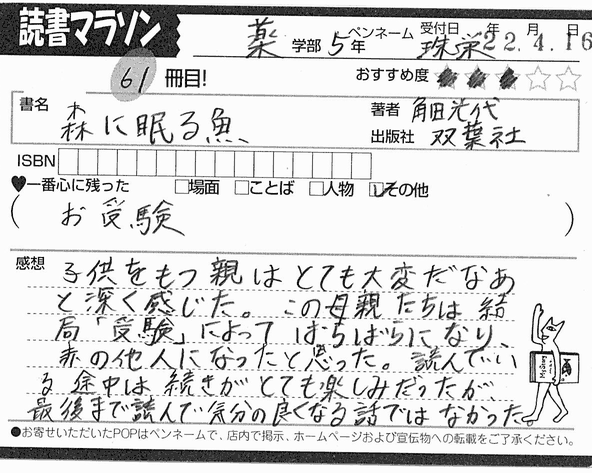 読書マラソン
薬 学部 5年 ペンネーム 珠栄 受付日 年 月 日 22.4.16
61 冊目! おすすめ度 ★★★☆☆
書名 森に眠る魚 著者 角田光代
出版社 双葉社
ISBN
♥一番心に残った □場面 □ことば □人物 ☑その他
( お受験 )
感想 子供をもつ親はとても大変だなあ
と深く感じた。この母親たちは結
局「受験」によってばらばらになり、
赤の他人になったと思った。読んでい
る途中は続きがとても楽しみだったが、
最後まで読んで気分の良くなる話ではなかった。
●お寄せいただいたPOPはペンネームで、店内で掲示、ホームページおよび宣伝物への転載をご了承ください。